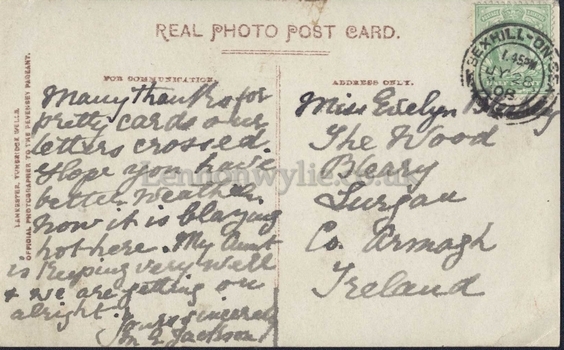 REAL PHOTO POST CARD.
FOR COMMUNICATION.
ADDRESS ONLY.
LANKESTER, TUNBRIDGE WELLS.
OFFICIAL PHOTOGRAPHER TO THE PEVENSEY PAGEANT.
BEXHILL-ON-SEA
1.45PM
JY
08
Many thanks for
pretty cards our
letters crossed.
Hope you have
better weather.
now it is blazing
hot here. My Aunt
is keeping very well
& we are getting on
alright.
Yours sincerely
M E Jackson
Miss Evelyn
The Wood
Bleary
Lurgan
Co. Armagh
Ireland
Lennonwylie.co.uk